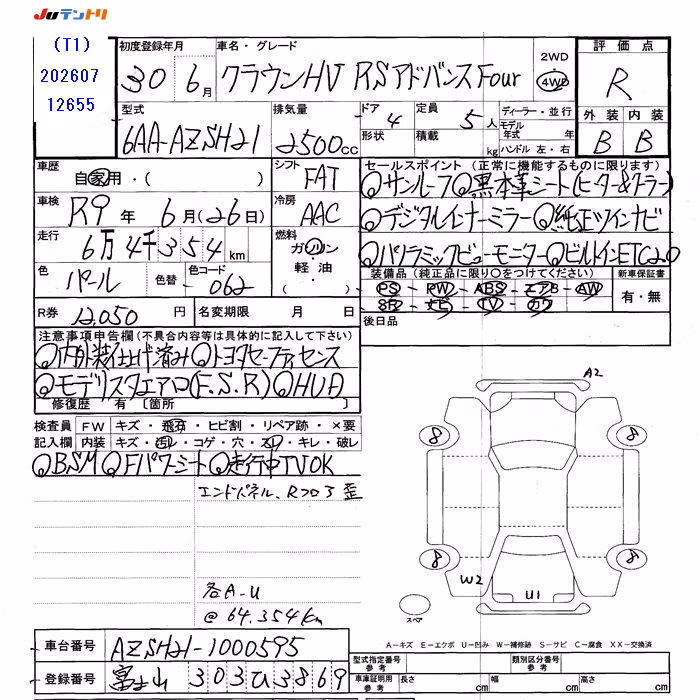 Juテントリ
(T1)
202607
12655
初度登録年月
30 6月
車名・グレード
クラウンHV RSアドバンスFour
2WD
4WD
評価点
R
外装 内装
B B
型式
6AA-AZSH21
排気量
2500cc
ドア 4
形状
定員 5人
積載 kg
ディーラー・並行
モデル年式 年
ハンドル 左・右
車歴
自家用・( )
シフト
FAT
車検
R9年 6月(26日)
冷房
AAC
走行
6万4千354km
燃料
ガソリン
軽油・
( )
色
パール
色替
色コード
062
R券
12,050円
名変期限 月 日
セールスポイント (正常に機能するものに限ります)
◎サンルーフ◎黒本革シート(ヒーター&クーラー)
◎デジタルインナーミラー◎純正ツインナビ
◎パノラミックビューモニター◎ビルトインETC2.0
装備品(純正品に限り○をつけてください)
PS・PW・ABS・エアB・AW
SR・ナビ・TV・カワ
新車保証書
有・無
後日品
注意事項申告欄(不具合内容等は具体的に記入して下さい)
◎内外装仕上げ済み◎トヨタセーフティセンス
◎モデリスタエアロ(F.S.R)◎HUD
修復歴 有 〔箇所 〕
検査員記入欄
FW キズ・飛石・ヒビ割・リペア跡・×要
内装 キズ・汚レ・コゲ・穴・スレ・キレ・破レ
◎BSM◎Fパワーシート◎走行中TVOK
エンドパネル、Rフロア歪
各A-U
@64.354km
A2
8
8
8
8
W2
U1
スペア
A-キズ E-エクボ U-凹み W-補修跡 S-サビ C-腐食 XX-交換済
車台番号
AZSH21-1000595
登録番号
富士山 303ひ3869
型式指定番号 参考
類別区分番号 参考
車庫証明用 参考
長さ cm
幅 cm
高さ cm